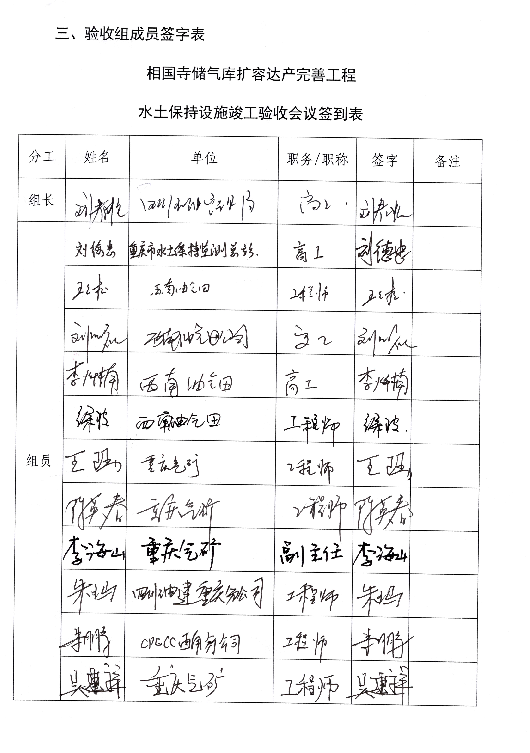 三、验收组成员签字表
相国寺储气库扩容达产完善工程
水土保持设施竣工验收会议签到表
分工 姓名 单位 职务/职称 签字 备注
组长 高工
刘德忠 重庆市水土保持监测总站 高工 刘德忠
西南油气田 工程师
西南油气田公司 高工
李 楠 西南油气田 高工 李 楠
徐波 西南油气田 工程师 徐波
组员 王 重庆气矿 工程师 王
陈英春 重庆气矿 工程师 陈英春
李海山 重庆气矿 副主任 李海山
朱 四川油建重庆分公司 工程师 朱
CPECC西南分公司 工程师
吴 重庆气矿 工程师 吴